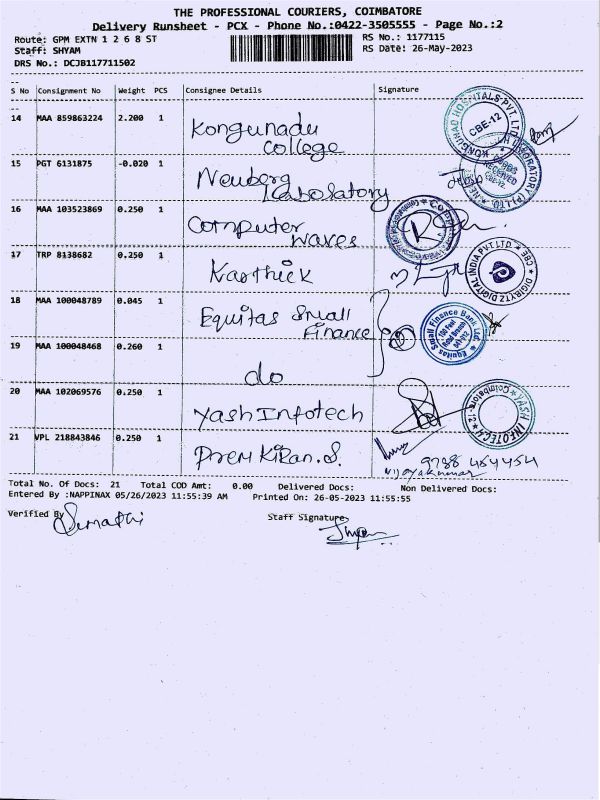 THE PROFESSIONAL COURIERS, COIMBATORE
Delivery Runsheet - PCX - Phone No.:0422-3505555 - Page No.:2
Route: GPM EXTN 1 2 6 8 ST
RS No.: 1177115
Staff: SHYAM
RS Date: 26-May-2023
DRS No.: DCJB117711502
S No Consignment No Weight PCS Consignee Details Signature
14 MAA 859863224 2.200 1 Kongunadu College
KONGUNAD HOSPITALS PVT. LTD
CBE-12
15 PGT 6131875 -0.020 1 Neuberg Laborsatory
RECEIVED
CBE-12
16 MAA 103523869 0.250 1 Computer waves
17 TRP 8138682 0.250 1 Karthick
DIGIRYTZ DIGITAL INDIA PVT LTD. CBE
18 MAA 100048789 0.045 1 Equitas Small Finance
Equitas Small Finance Bank Ltd.
19 MAA 100048468 0.260 1 do
20 MAA 102069576 0.250 1 Yash Infotech
YASH INFOTECH Coimbatore-12
21 VPL 218843846 0.250 1 Prem Kiran.S.
9788 454454
vijayakumar
Total No. Of Docs: 21 Total COD Amt: 0.00 Delivered Docs: Non Delivered Docs:
Entered By :NAPPINAX 05/26/2023 11:55:39 AM Printed On: 26-05-2023 11:55:55
Verified By Sumathi
Staff Signature
Shyam